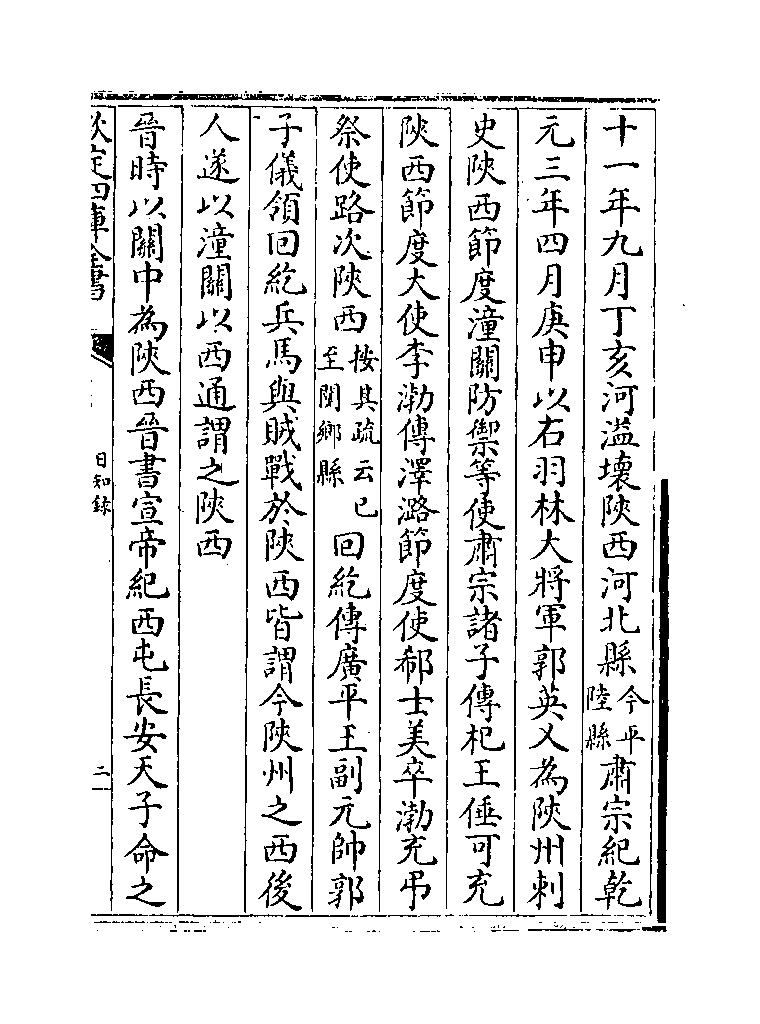 十一年九月丁亥河溢壞陜西河北縣今平陸縣肅宗紀乾
元三年四月庚申以右羽林大將軍郭英乂為陜州刺
史陜西節度潼關防禦等使肅宗諸子傳杞王倕可充
陜西節度大使李渤傳澤潞節度使郗士美卒渤充弔
祭使路次陜西按其疏云已至閿鄉縣回紇傳廣平王副元帥郭
子儀領回紇兵馬與賊戰於陜西皆謂今陜州之西後
人遂以潼關以西通謂之陜西
晉時以關中為陜西晉書宣帝紀西屯長安天子命之
欽定四庫全書
日知錄
二